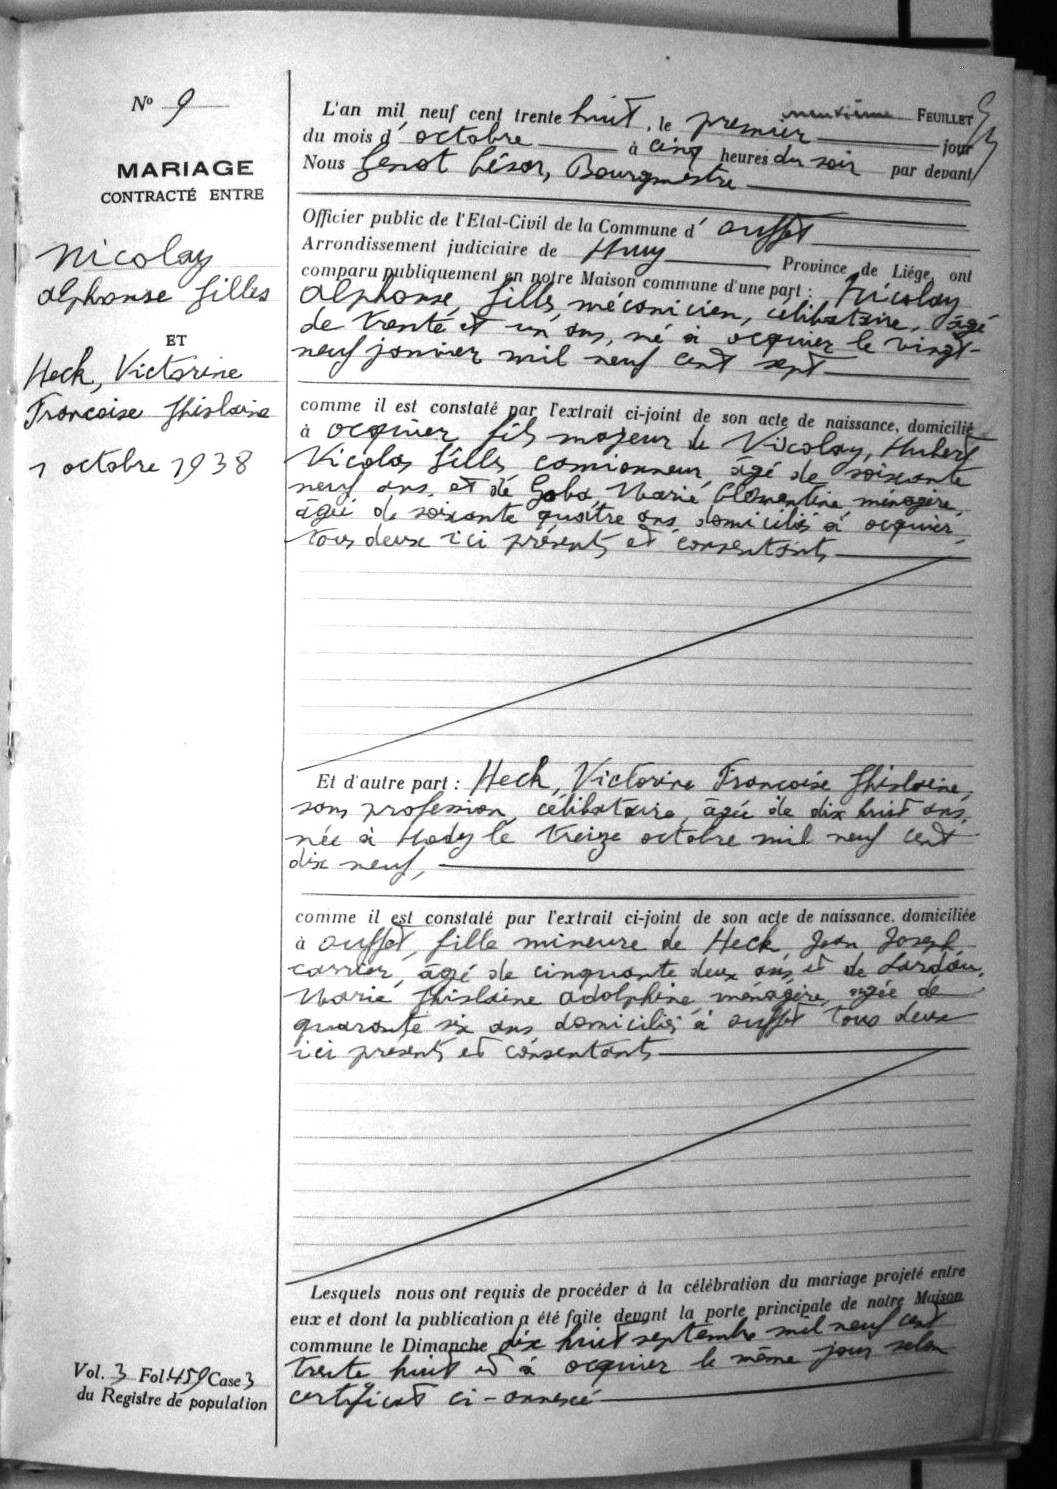 N° 9
MARIAGE
CONTRACTÉ ENTRE
Nicolay
Alphonse Gilles
ET
Heck, Victorine
Francoise Ghislaine
1 octobre 1938
Vol. 3 Fol 459 Case 3
du Registre de population
neuvième FEUILLET 9
L'an mil neuf cent trente huit, le premier jour
du mois d'octobre à cinq heures du soir par devant
Nous Genot César, Bourgmestre
Officier public de l'Etat-Civil de la Commune d'Ouffet
Arrondissement judiciaire de Huy Province de Liége, ont
comparu publiquement en notre Maison commune d'une part : Nicolay
Alphonse Gilles, mécanicien, célibataire, âgé
de trente et un ans, né à Ocquier le vingt-
neuf janvier mil neuf cent sept
comme il est constaté par l'extrait ci-joint de son acte de naissance, domicilié
à Ocquier fils majeur de Nicolay, Hubert
Nicolas Gilles camionneur, âgé de soixante
neuf ans, et de Goba, Marie Clémentine, ménagère,
âgée de soixante quatre ans domiciliés à Ocquier,
tous deux ici présents et consentants
Et d'autre part : Heck, Victorine Francoise Ghislaine,
sans profession, célibataire, âgée de dix huit ans,
née à Mody le treize octobre mil neuf cent
dix neuf,
comme il est constaté par l'extrait ci-joint de son acte de naissance, domiciliée
à Ouffet, fille mineure de Heck, Jean Joseph,
carrier, âgé de cinquante deux ans et de Lardau,
Marie Ghislaine Adolphine, ménagère, agée de
quarante six ans domiciliés à Ouffet tous deux
ici presents et consentants
Lesquels nous ont requis de procéder à la célébration du mariage projeté entre
eux et dont la publication a été faite devant la porte principale de notre Maison
commune le Dimanche dix huit septembre mil neuf cent
trente huit et à Ocquier le même jour selon
certificat ci-annexé